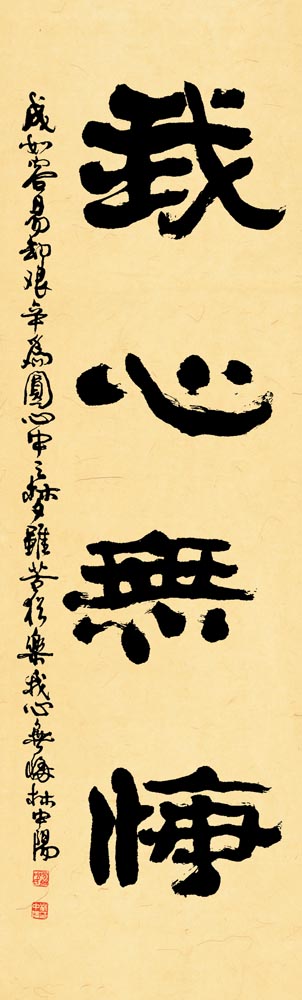 我心無悔
成如容易卻艱辛為圓心中之夢雖苦猶樂我心無悔林中陽